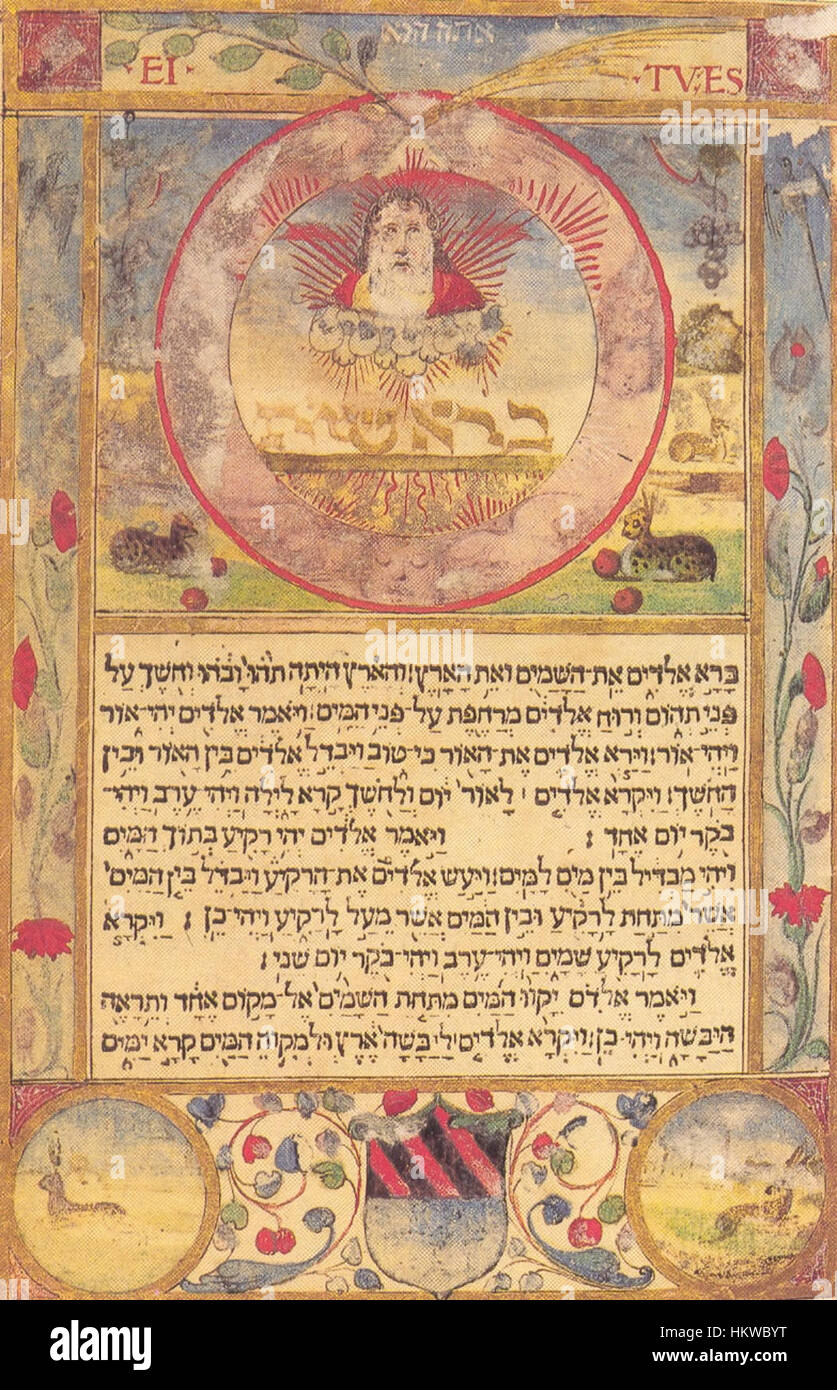 אתה הלא
·EI· ·TV:ES
בראשית
ברא אלדים את־השמים ואת הארץ׃ והארץ היתה תהו ובהו וחשך על
פני תהום ורוח אלדים מרחפת על־פני המים׃ ויאמר אלדים יהי־אור
ויהי־אור׃ וירא אלדים את־האור כי־טוב ויבדל אלדים בין האור ובין
החשך׃ ויקרא אלדים לאור יום ולחשך קרא לילה ויהי־ערב ויהי־
בקר יום אחד׃ ויאמר אלדים יהי רקיע בתוך המים
ויהי מבדיל בין מים למים׃ ויעש אלדים את־הרקיע ויבדל בין המים
אשר מתחת לרקיע ובין המים אשר מעל לרקיע ויהי־כן׃ ויקרא
אלדים לרקיע שמים ויהי־ערב ויהי־בקר יום שני׃
ויאמר אלדים יקוו המים מתחת השמים אל־מקום אחד ותראה
היבשה ויהי־כן׃ ויקרא אלדים ליבשה ארץ ולמקוה המים קרא ימים
alamy
Image ID: HKWBYT
www.alamy.com